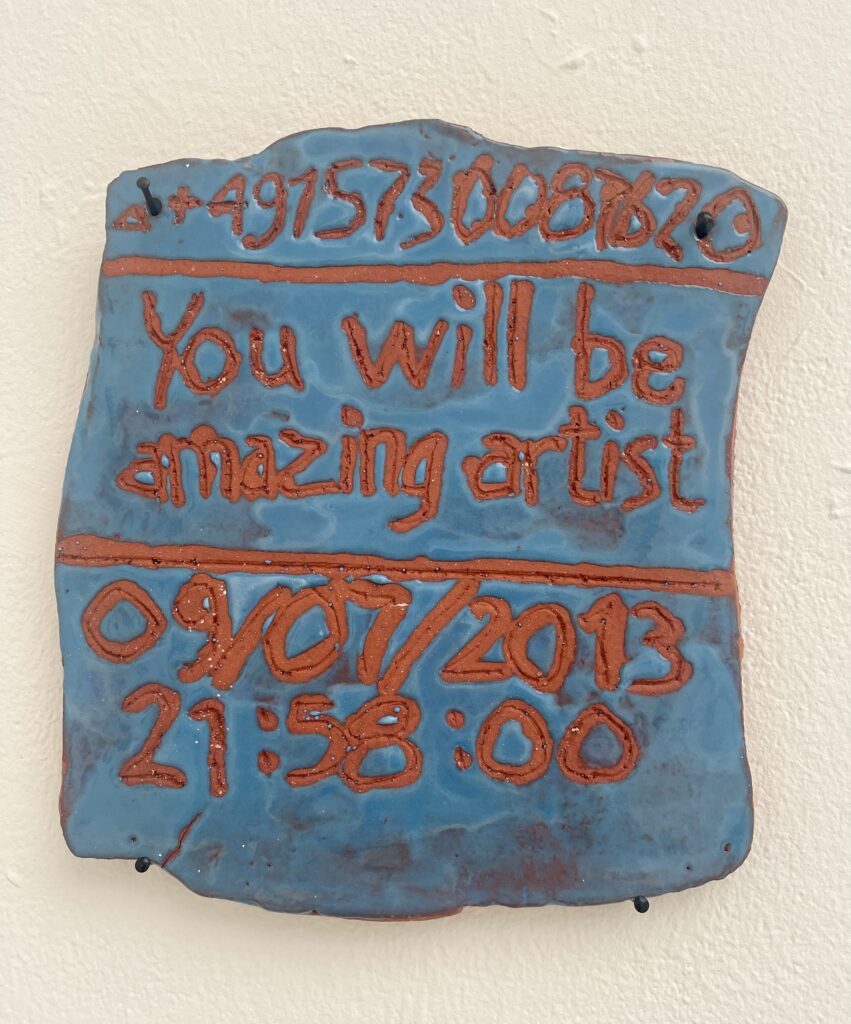 +4915730087620
You will be
amazing artist
09/07/2013
21:58:00